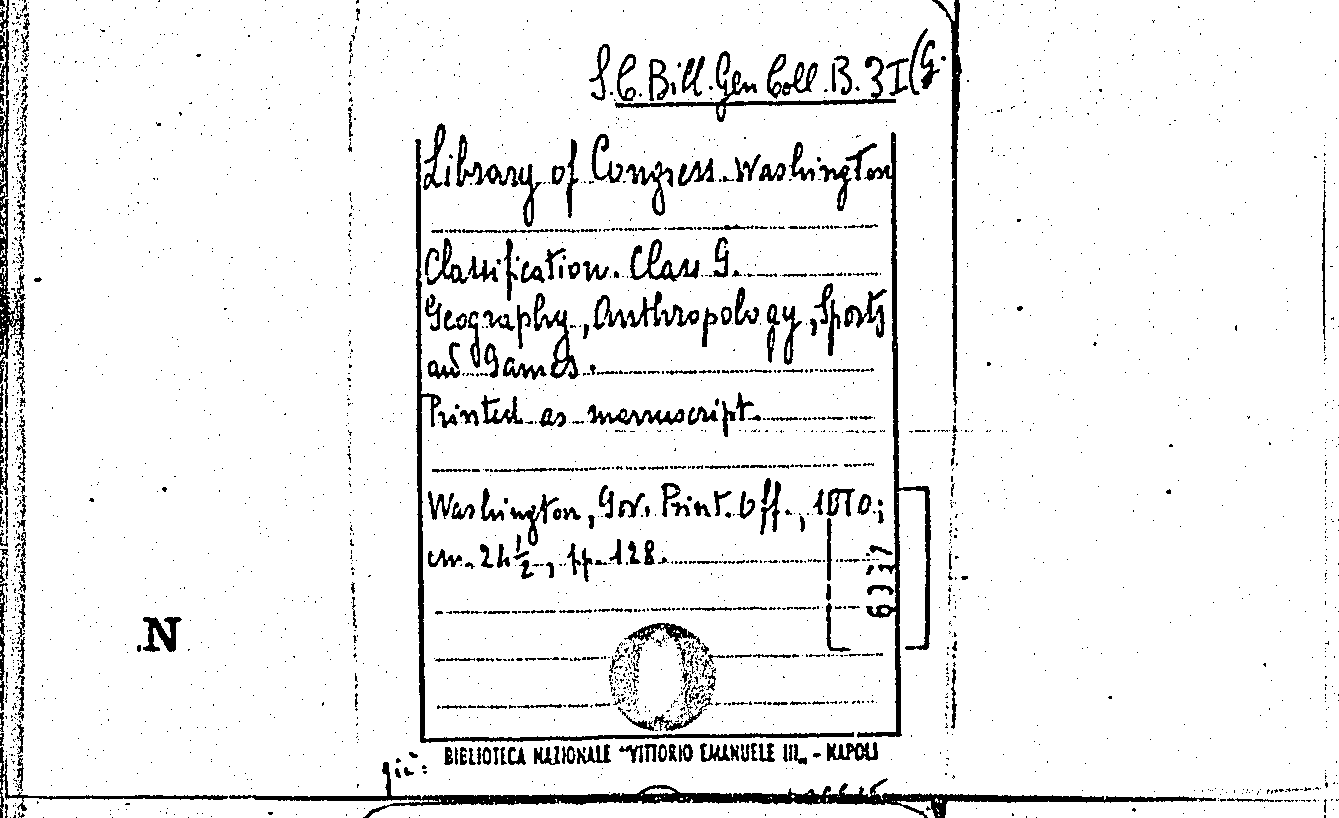 S.C. Bill. Gen Coll. B. 3I(G.
Library of Congress. Washington
Classification. Class G.
Geography, Anthropology, Sports
and Games.
Printed as manuscript.
Washington, Gov. Print. Off., 1910;
cm. 24 1/2, pp. 128.
6337
N
BIBLIOTECA NAZIONALE "VITTORIO EMANUELE III„ - NAPOLI
già: